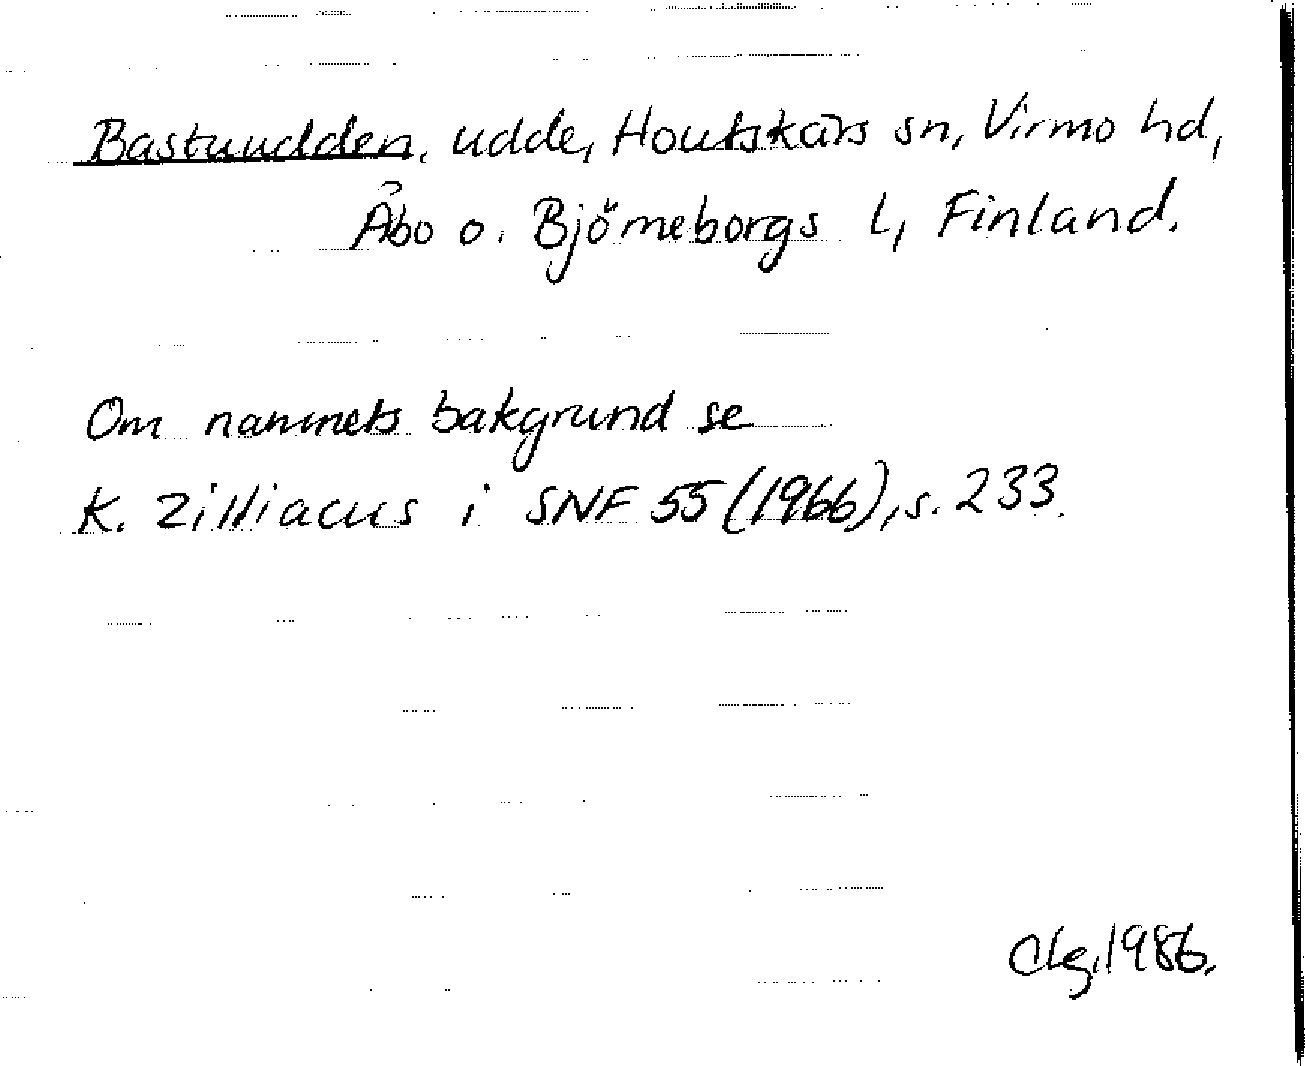 Bastuudden, udde, Houtskärs sn, Virmo hd,
Åbo o. Björneborgs l, Finland.
Om namnets bakgrund se
K. Zilliacus i SNF 55 (1966), s. 233.
Clg, 1986.